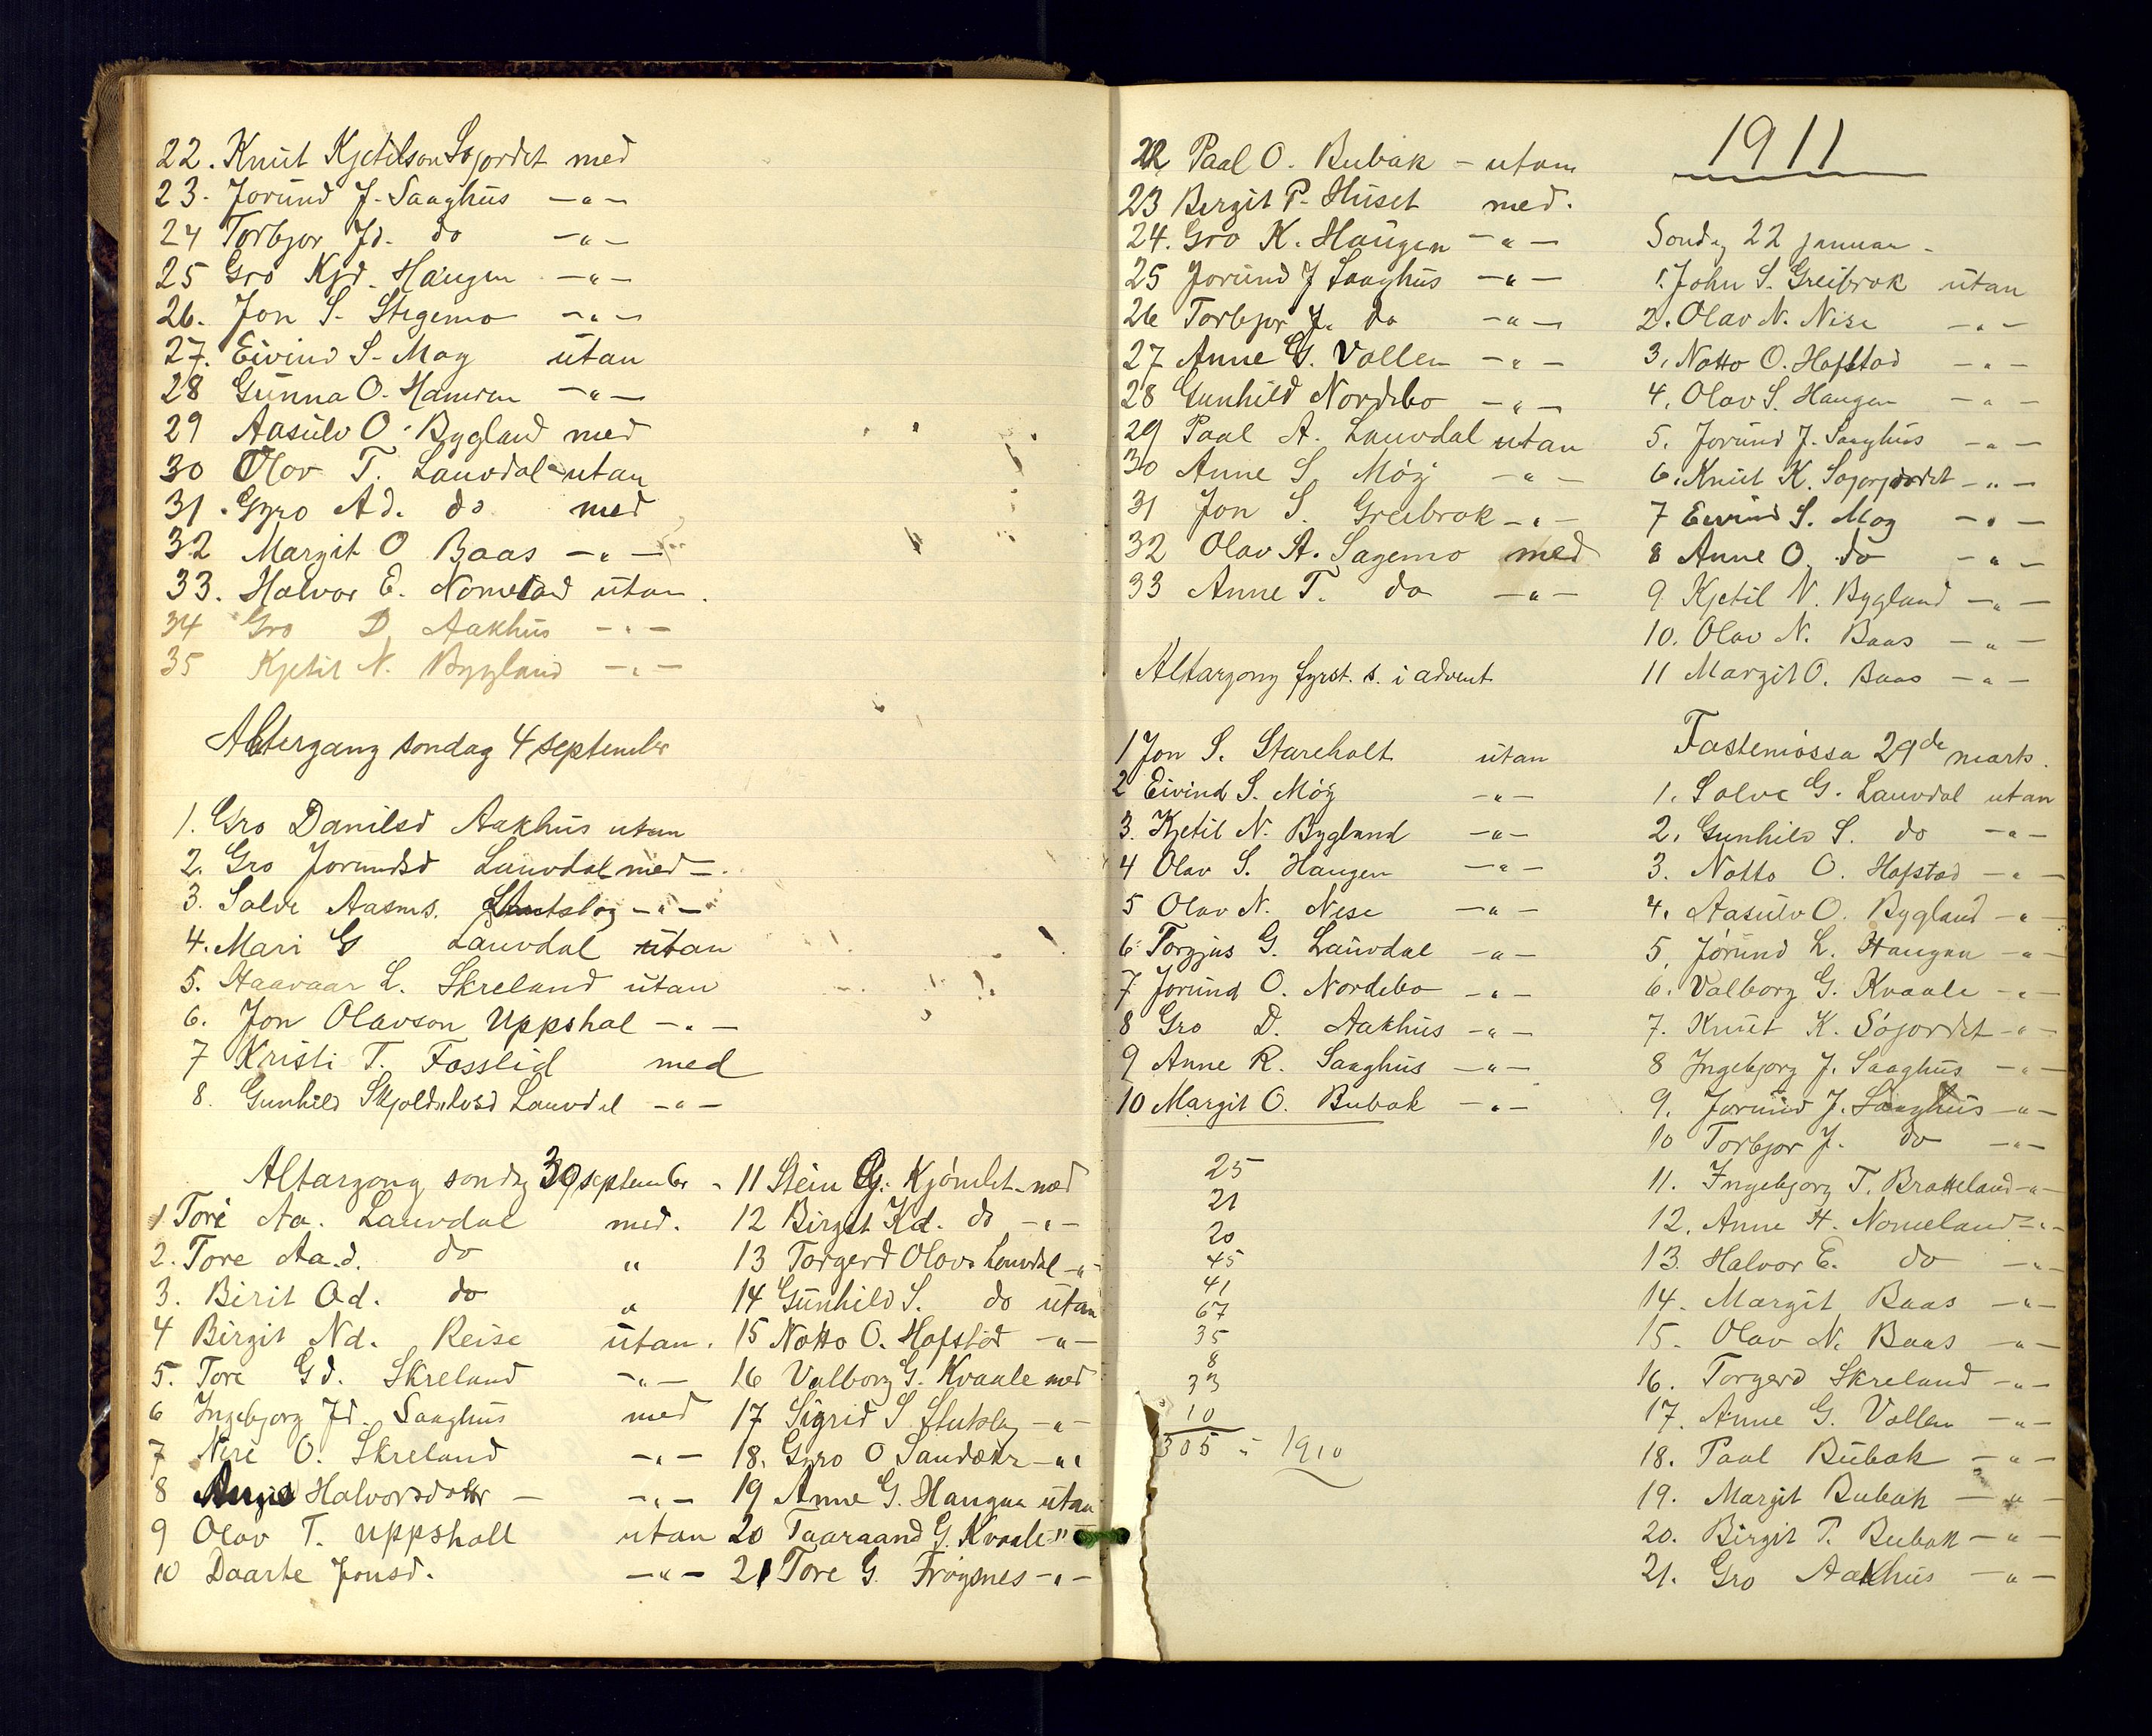 22. Knut Kjetilson Søjordet med
23. Jorund J. Saaghus -"-
24 Torbjor Jd. do -"-
25 Gro Kjd. Haugen -"-
26. Jon S. Stegemo -"-
27. Eivind S. Moy utan
28 Gunna O. Hamren -"-
29 Aasulv O. Bygland med
30 Olov T. Lauvdal utan
31. Gyro Ad. do med
32 Margit O Baas -"-
33. Halvor E. Nomeland utan.
34 Gro D. Aakhus -"-
35 Kjetil N. Bygland -"-
Altergang sondag 4 september
1. Gro Danilsd Aakhus utan
2. Gro Jorundsd Lauvdal med -.
3. Salve Aasms. -"-
4. Mari G Lauvdal utan
5. Haavaar L. Skreland utan
6. Jon Olavson Uppshal -"-
7 Kristi T. Fosslid med
8. Gunhild Lauvdal -"-
Altargong sondag 30 september -
1 Tore Aa. Lauvdal med.
2. Tore Aa.d. do "
3. Birit Od. do "
4 Birgit Nd. Reise utan.
5. Tore Gd. Skreland -"-
6 Ingebjorg Jd. Saaghus med
7 Neri O. Skreland -"-
8 Halvorsdotter - -"-
9 Olav T. Uppshall utan
10 Daarte Jonsd. -"-
11 Stein G. Kjømlet med
12 Birgit Kd. do -"-
13 Torgerd Olovs Lauvdal -"-
14 Gunhild S. do utan
15 Notto O. Hofstad -"-
16 Valborg G. Kvaale med
17 Sigrid S. -"-
18. Gyro O -"-
19 Anne G. Haugen utan
20 Taaraand G. Kvaale "
21 Tore G. Frøysnes -"-
22 Paal O. Bubak - utan
23 Bergit P. Huset med.
24. Gro K. Haugen -"-
25 Jorund J Saaghus -"-
26 Torbjor J. do -"-
27 Anne G. Vollen -"-
28 Gunhild Nordebo -"-
29 Paal A. Lauvdal utan
30 Anne S. Møy -"-
31 Jon S. Greibrok -"-
32 Olav A. Sagemo med
33 Anne T. do -"-
Altargong fyrst. s. i advent
1 Jon S. Stareholt utan
2 Eivind S. Møy -"-
3. Kjetil N. Bygland -"-
4 Olav S. Haugen -"-
5 Olav N. Nese -"-
6 Torgjus G. Lauvdal -"-
7 Jorund O. Nordebo -"-
8 Gro D. Aakhus -"-
9 Anne R. Saaghus -"-
10 Margit O. Bubak -"-
25
21
20
45
41
67
35
8
33
10
305 i 1910
1911
Sondag 22 januar -
1. John S. Greibrok utan
2. Olav N. Nese -"-
3. Notto O. Hofstad -"-
4. Olav S. Haugen -"-
5. Jorund J. Saaghus -"-
6. Knut K. -"-
7 Eivind S. Moy -"-
8 Anne O. do -"-
9 Kjetil N. Bygland -"-
10. Olav N. Baas -"-
11 Margit O. Baas -"-
Fastemøssa 29de marts.
1. Salve G. Lauvdal utan
2. Gunhild S. do -"-
3. Notto O. Hofstad -"-
4. Aasulv O. Bygland -"-
5. Jørund L. Haugen -"-
6. Valborg G. Kvaale -"-
7. Knut K. Søjordet -"-
8 Ingebjorg J. Saaghus -"-
9. Jorund J. Saaghus -"-
10 Torbjor J. do -"-
11. Ingebjorg T. Bratteland -"-
12. Anne H. Nomeland -"-
13. Halvor E. do -"-
14. Margit Baas -"-
15. Olav N. Baas -"-
16. Torgerd Skreland -"-
17. Anne G. Vollen -"-
18. Paal Bubak -"-
19. Margit Bubak -"-
20. Birgit P. Bubak -"-
21. Gro Aakhus -"-